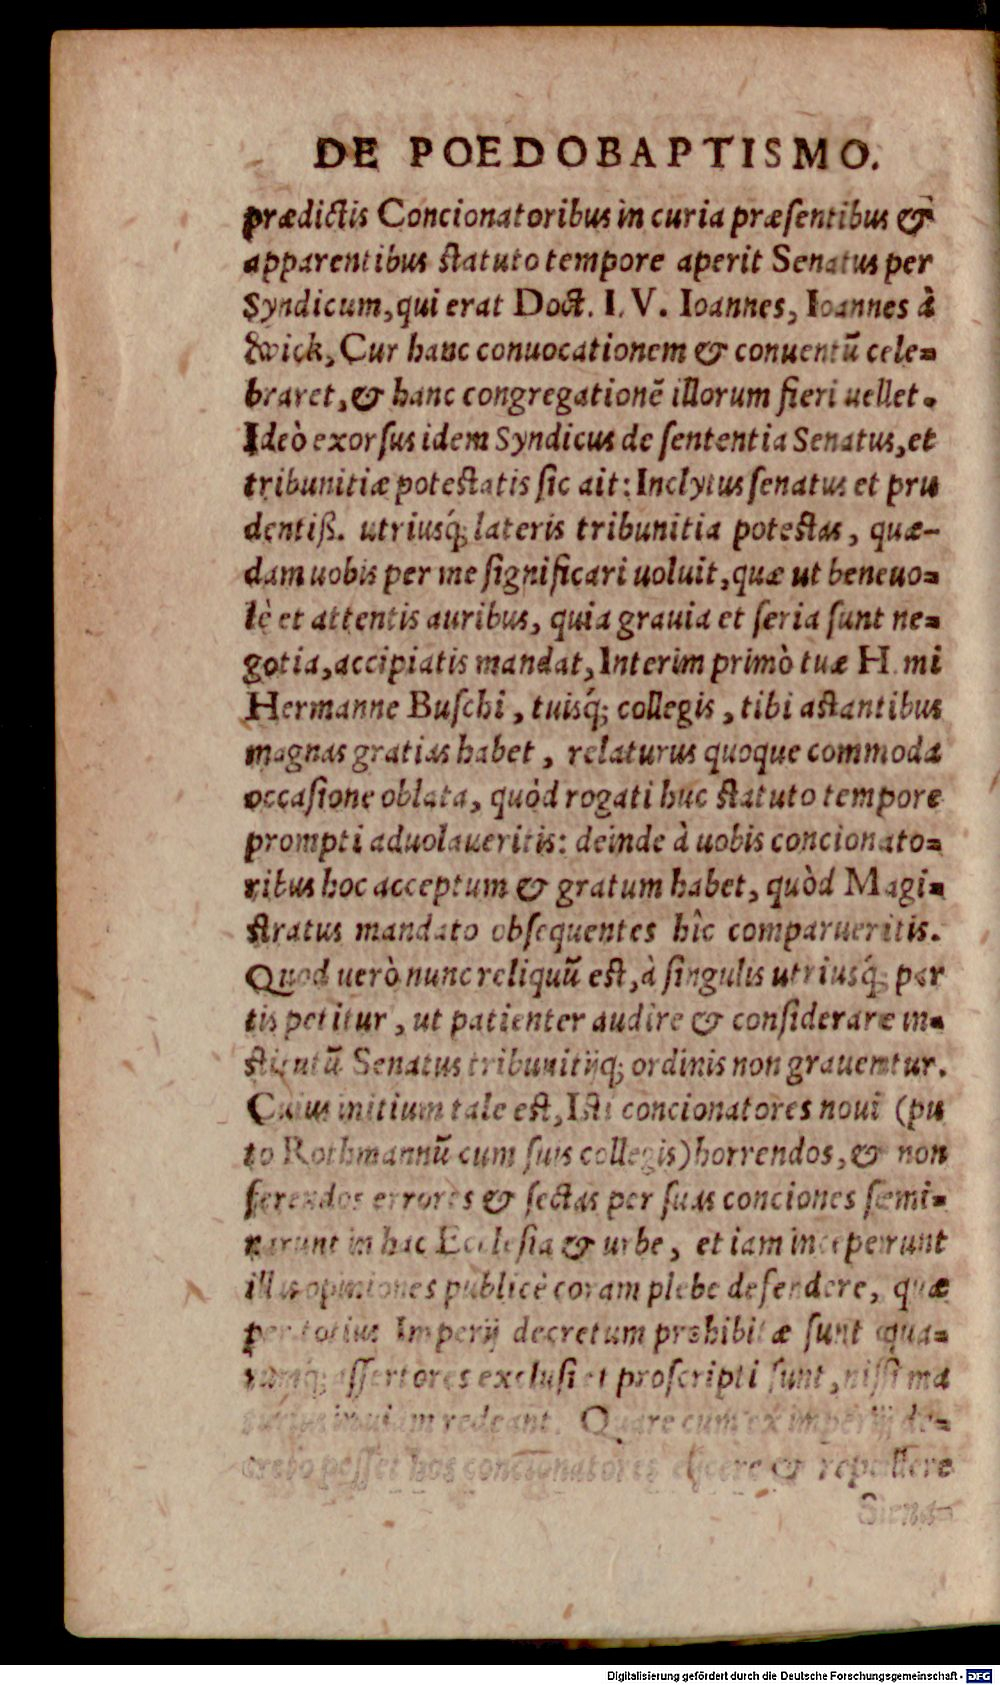 DE POEDOBAPTISMO.
prædictis Concionatoribus in curia præſentibus &
apparentibus ſtatuto tempore aperit Senatus per
Syndicum, qui erat Doct. I. V. Ioannes, Ioannes à
Wick, Cur hanc conuocationem & conuentũ cele-
braret, & hanc congregationẽ illorum fieri uellet.
Ideò exorſus idem Syndicus de ſententia Senatus, et
tribunitiæ poteſtatis ſic ait: Inclytus ſenatus et pru
dentiß. utriusq́; lateris tribunitia poteſtas, quæ-
dam uobis per me ſignificari uoluit, quæ ut beneuo-
lè et attentis auribus, quia grauia et ſeria ſunt ne-
gotia, accipiatis mandat, Interim primò tuæ H. mi
Hermanne Buſchi, tuisq́; collegis, tibi aſtantibus
magnas gratias habet, relaturus quoque commoda
occaſione oblata, quòd rogati huc ſtatuto tempore
prompti aduolaueritis: deinde à uobis concionato-
ribus hoc acceptum & gratum habet, quòd Magi-
ſtratus mandato obſequentes hîc comparueritis.
Quod uerò nunc reliquũ eſt, à ſingulis utriusq́; par
tis petitur, ut patienter audire & conſiderare in-
ſtitutũ Senatus tribunitijq; ordinis non grauentur.
Cuius initium tale eſt, Iſti concionatores noui (pu
to Rothmannũ cum ſuis collegis) horrendos, & non
ferendos errores & ſectas per ſuas conciones ſemi-
narunt in hac Eccleſia & urbe, et iam inceperunt
illas opiniones publicè coram plebe defendere, quæ
per totius Imperij decretum prohibitæ ſunt qua-
rumq́; aſſertores excluſi et proſcripti ſunt, niſſi ma
turius in uiam redeant. Quare cum ex imperij de-
creto poſſet hos concionatores eijcere & repellere
Sena-
Digitalisierung gefördert durch die Deutsche Forschungsgemeinschaft - DFG